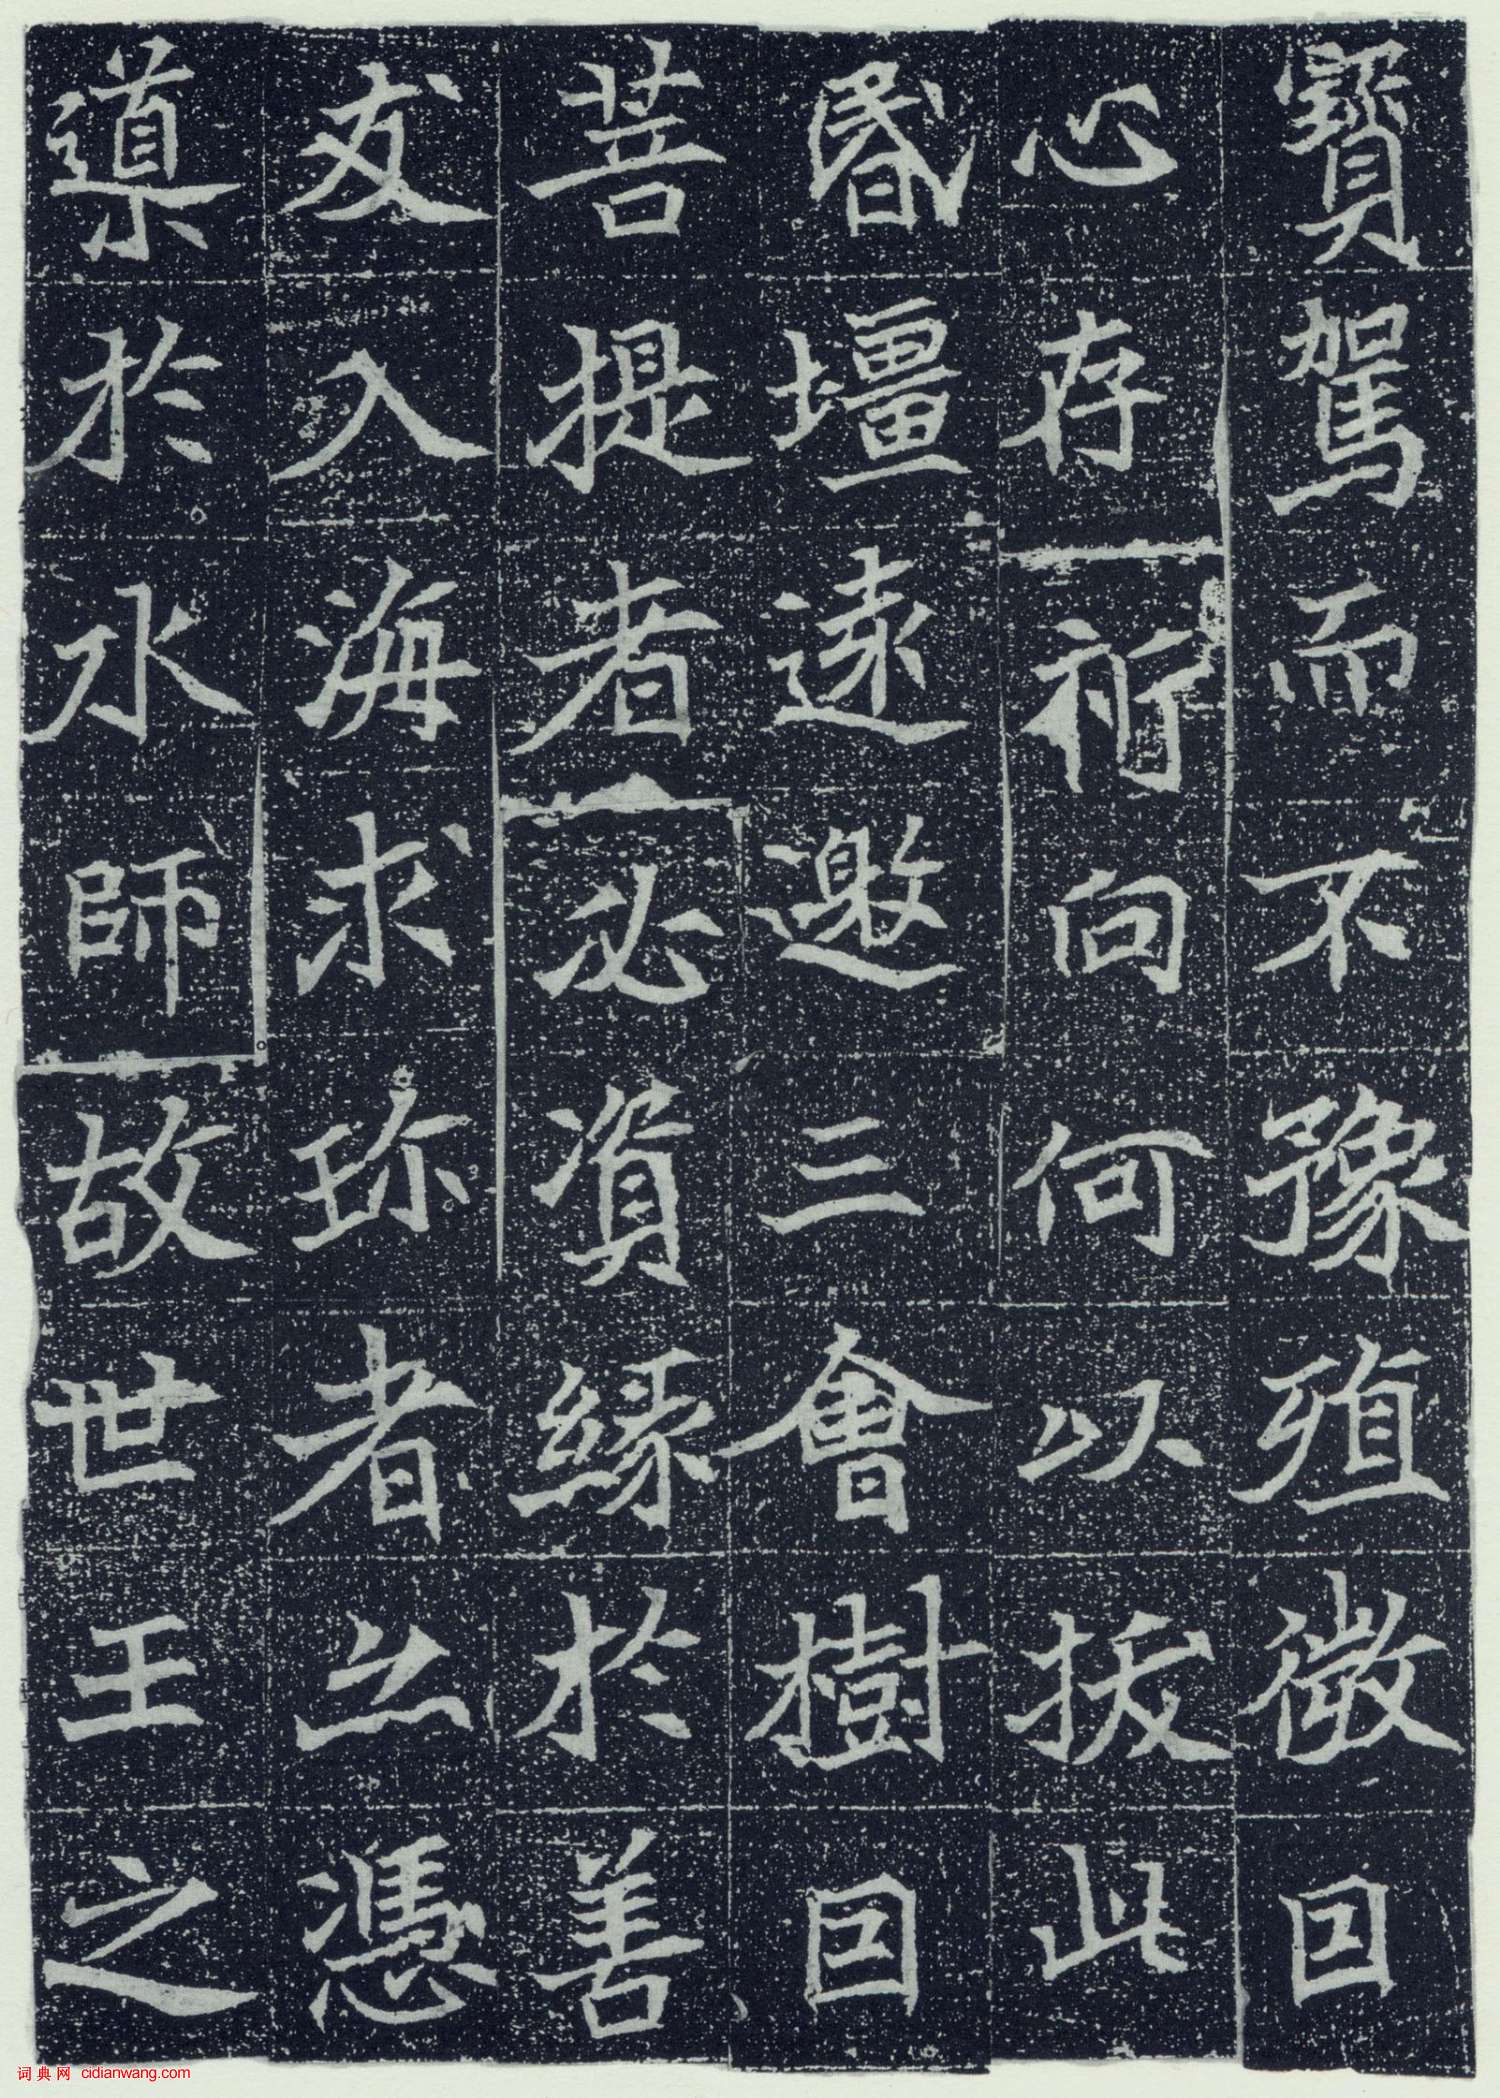 寶駕而不豫殖微囙
心存祈向何以拔此
昬壃遠邀三會樹囙
菩提者必資緣於善
友入海求珎者憑
導於水師故世王之
词典网 cidianwang.com